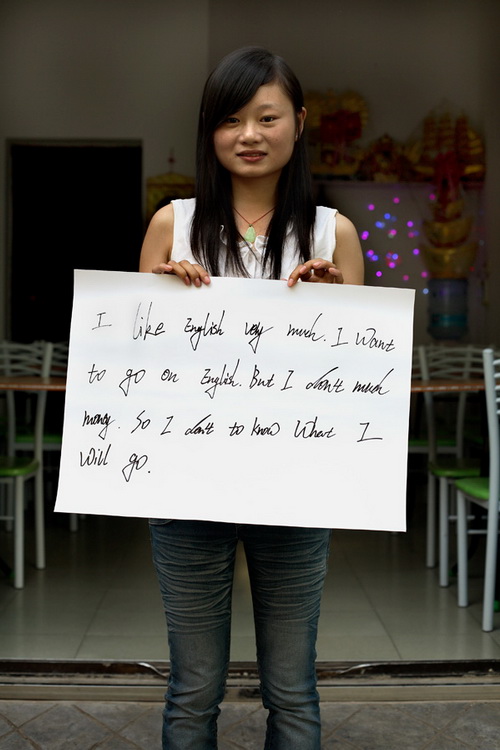 I like English very much. I want
to go on English. But I don't much
money. So I don't to know what I
will go.